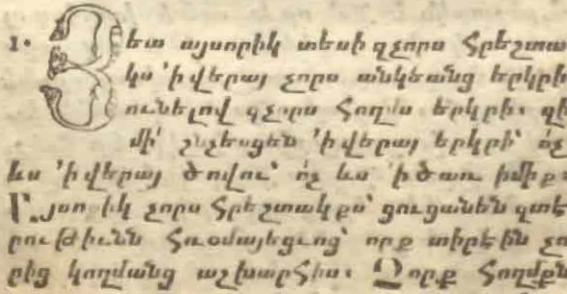 1. Յետ այսորիկ տեսի զչորս Հրեշտա
կս 'ի վերայ չորս անկեանց երկրի
ունելով զչորս Հողմս երկրի. զի
մի՛ շնչեսցեն 'ի վերայ երկրի՝ ո՛չ
ևս 'ի վերայ ծովու՝ ո՛չ ևս 'ի ծառ իմիք:
Այսոքիկ չորս Հրեշտակքս՝ ցուցանեն զտէ
րութիւնն Հռօմայեցւոց՝ որք տիրէին չո
րից կողմանց աշխարՀիս. Զորք Հողմքն